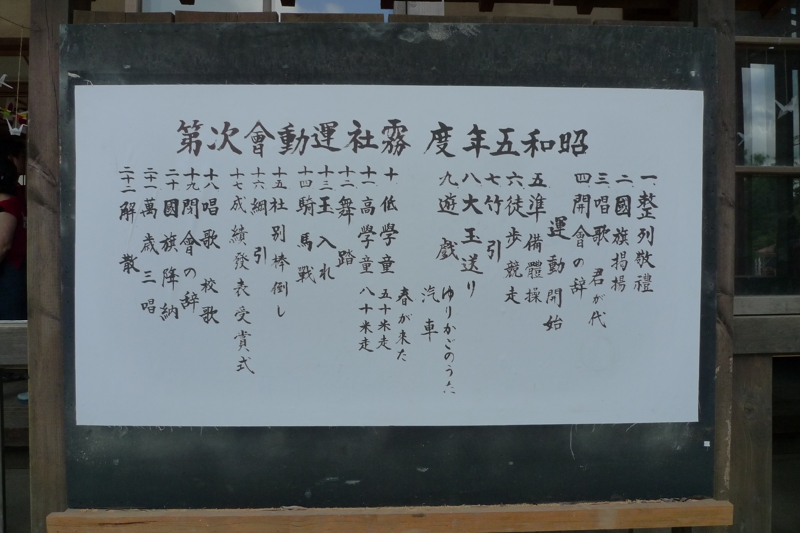 昭和五年度 霧社運動會次第
一、整列敬禮
二、國旗揭揚
三、唱歌 君が代
四 開會の辞
運動開始
五 準備體操
六 徒歩競走
七 竹引
八 大玉送り
九 遊戲 ゆりかごのうた
汽車
春が来た
十 低學童 五十米走
十一 高學童 八十米走
十二 舞踏
十三 玉入れ
十四 騎馬戰
十五 社別棒倒し
十六 綱引
十七 成績發表受賞式
十八 唱歌 校歌
十九 閉會の辞
二十 國旗降納
二十一 萬歳三唱
二十二 解散